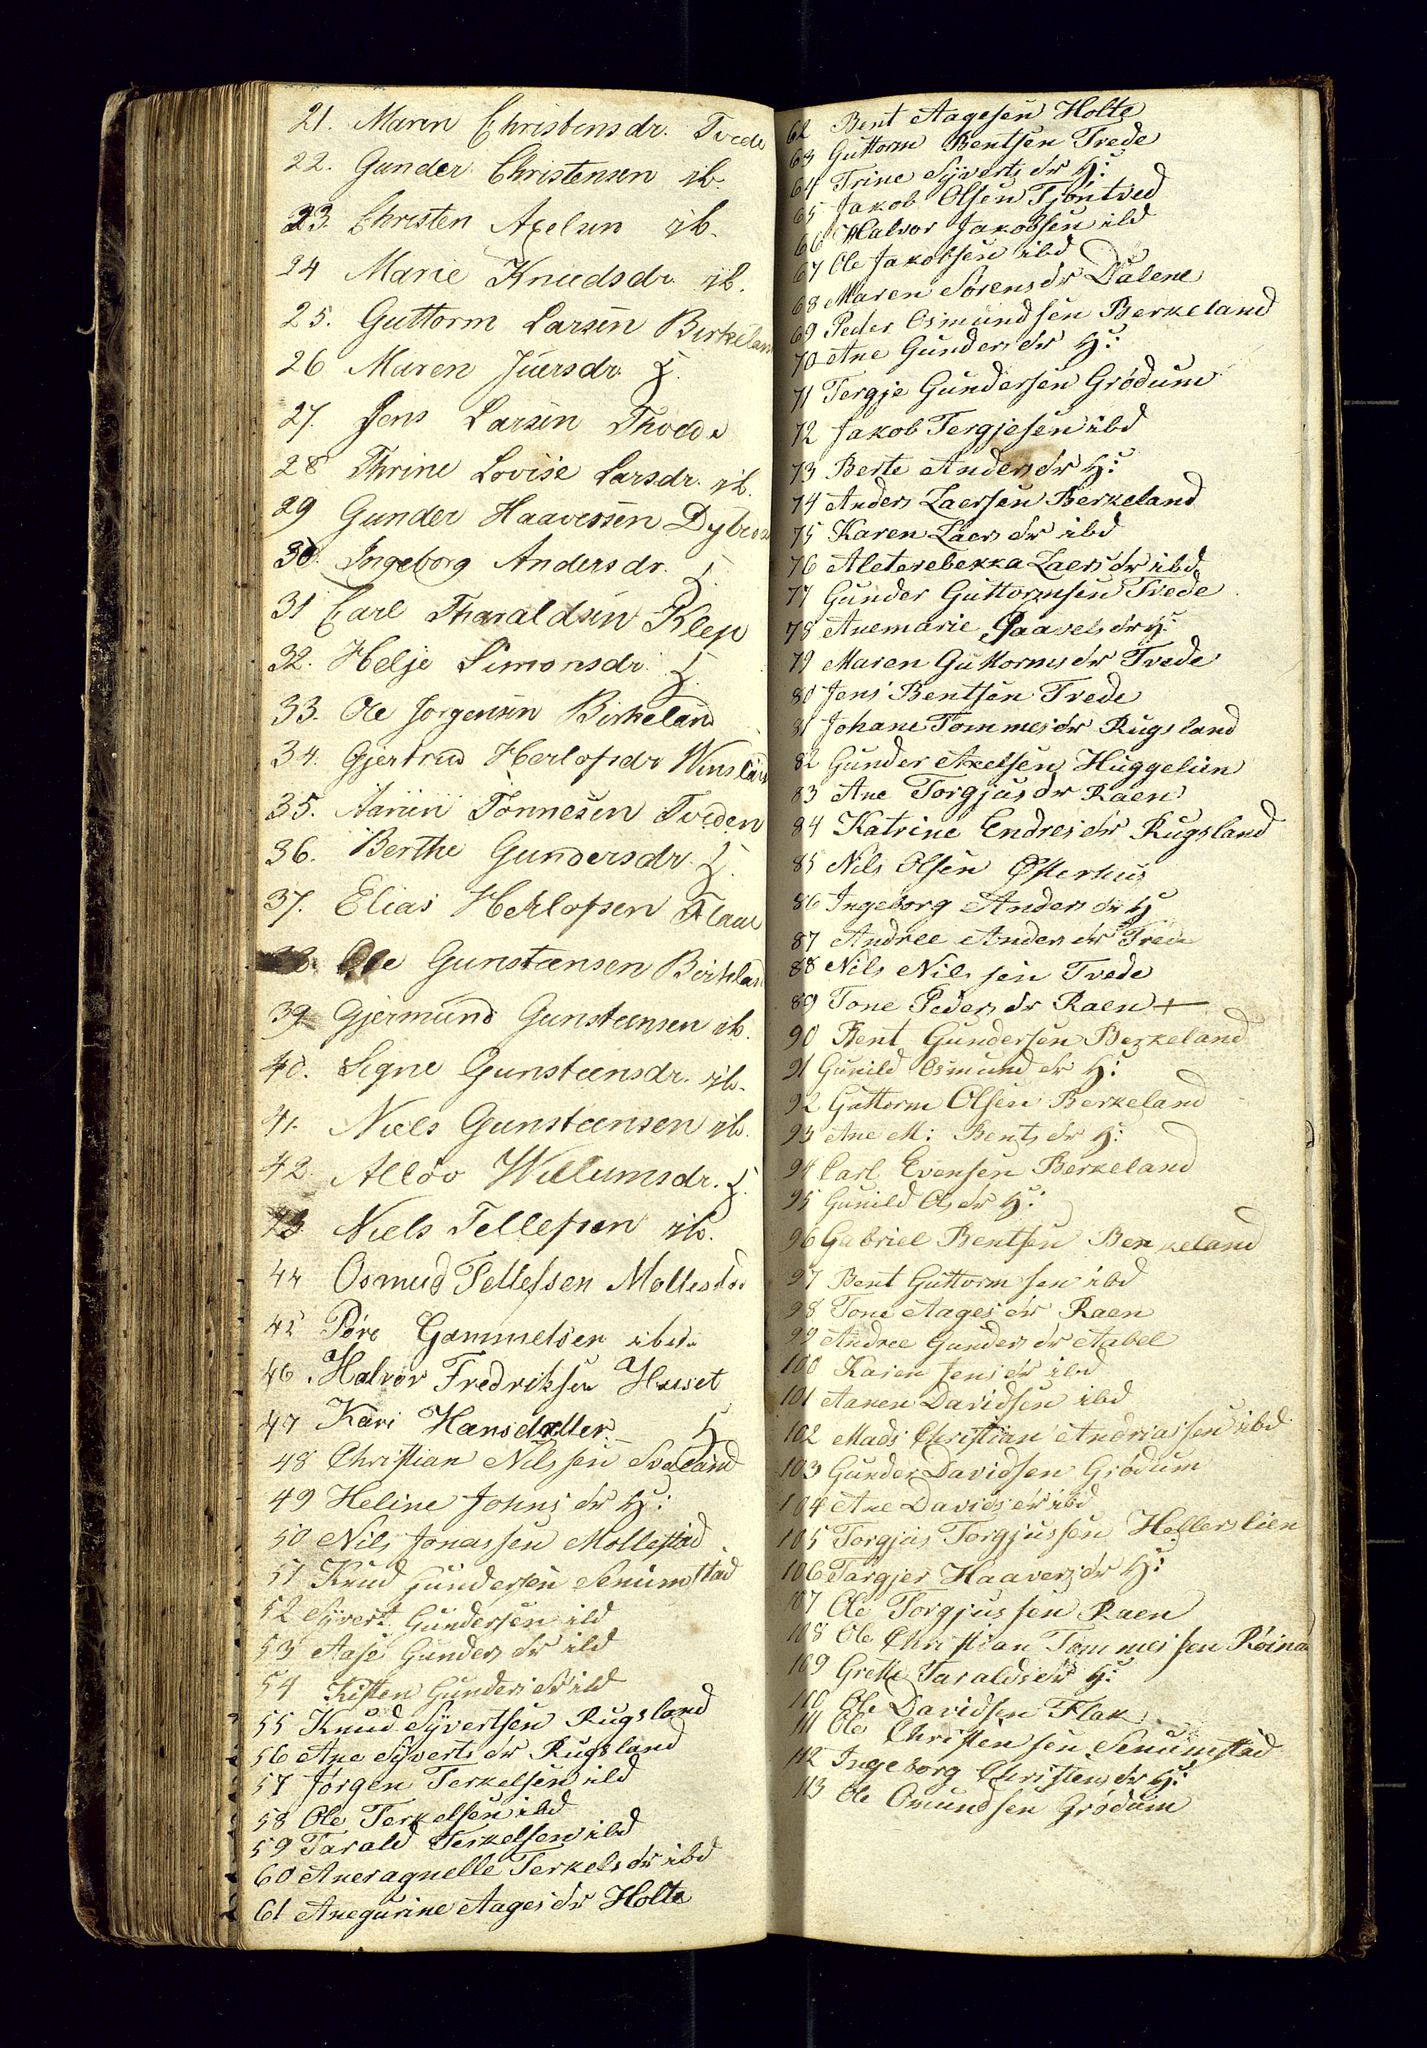 21. Maren Christensdr. Tvede
22. Gunder Christensen ib.
23. Christen Axelsen ib.
24 Marie Knudsdr. ib.
25. Guttorm Larsen Birkeland
26 Maren Juersdr. H.
27. Jens Larsen Thvede
28 Thrine Lovise Larsdr. ib.
29 Gunder Haavessen
30. Ingeborg Andersdr. H.
31 Carl Tharaldsen Klep
32. Helje Simonsdr. H.
33. Ole Jørgensen Birkeland
34. Gjertrud Herlofsdr
35. Tønnesen Tveden
36. Berthe Gundersdr. H.
37. Elias Herlofsen Flaae
38. Ole Gunstensen Birkland
39. Gjermund Gunstensen ib.
40. Signe Gunstensdr. ib.
41. Niels Gunstensen ib.
42. Willumsdr. H.
43 Niels Tellefsen ib.
44 Osmud Tellefssen
45 Gammelsen ibd.
46. Halvor Fredriksen Huset
47 Kari Hansdatter H
48 Christian Nilssen Svaland
49 Heline Johnsdr H:
50 Nils Jonassen Mollestad
51 Knud Gundersen Senumstad
52 Syvert Gundersen ibd
53 Aase Gundersdr ibd
54 Kisten Gundersdr ibd
55 Knud Syvertsen Rugsland
56 Ane Syvertsdr Rugsland
57 Jørgen Terkelsen ibd
58 Ole Terkelsen ibd
59 Tarald Terkelsen ibd
60 Aneragnelle Terkelsdr ibd
61 Anegurine Aagesdr Holte
62 Bent Aagesen Holte
63 Guttorm Bentsen Tvede
64 Trine Syvertsdr H:
65 Jakob Olsen Tjøntved
66 Halvor Jakobsen ibd
67 Ole Jakobsen ibd
68 Maren Sørensdr Dalene
69 Peder Osmundsen Berkeland
70 Ane Gundersdr H:
71 Tergje Gundersen Grødum
72 Jakob Tergjesen ibd
73 Berte Andersdr H:
74 Anders Laersen Berkeland
75 Karen Laersdr ibd
76 Aleterebekka Laersdr ibd
77 Gunder Guttormsen Tvede
78 Anemarie Paavelsdr H:
79 Maren Guttormsdr Tvede
80 Jens Bentsen Tvede
81 Johane Tommesdr Rugsland
82 Gunder Axelsen Huggelien
83 Ane Torgjusdr Raen
84 Katrine Endresdr Rugsland
85 Nils Olsen Østerhus
86 Ingeborg Andersdr H
87 Andree Andersdr Tvede
88 Nils Nilssen Tvede
89 Tone Pedersdr Raen +
90 Bent Gundersen Berkeland
91 Gunild Osmundsdr H:
92 Guttorm Olsen Berkeland
93 Ane M: Bentsdr H:
94 Carl Evensen Berkeland
95 Gunild Olsdr H:
96 Gabriel Bentsen Berkeland
97 Bent Guttormsen ibd
98 Tone Aagesdr Raen
99 Andree Gundersdr Aabel
100 Karen Jensdr ibd
101 Aanen Davidsen ibd
102 Mads Christian Andriassen ibd
103 Gunder Davidsen Grødum
104 Ane Davidsdr ibd
105 Torgjus Torgjussen Hefterslien
106 Targjer Haaversdr H:
107 Ole Torgjussen Raen
108 Ole Christian Tommessen
109 Grete Taraldsdr H:
110 Ole Davidsen Flak
111 Ole Christensen Senumstad
112 Ingeborg Christensdr H:
113 Ole Omundsen Grødum